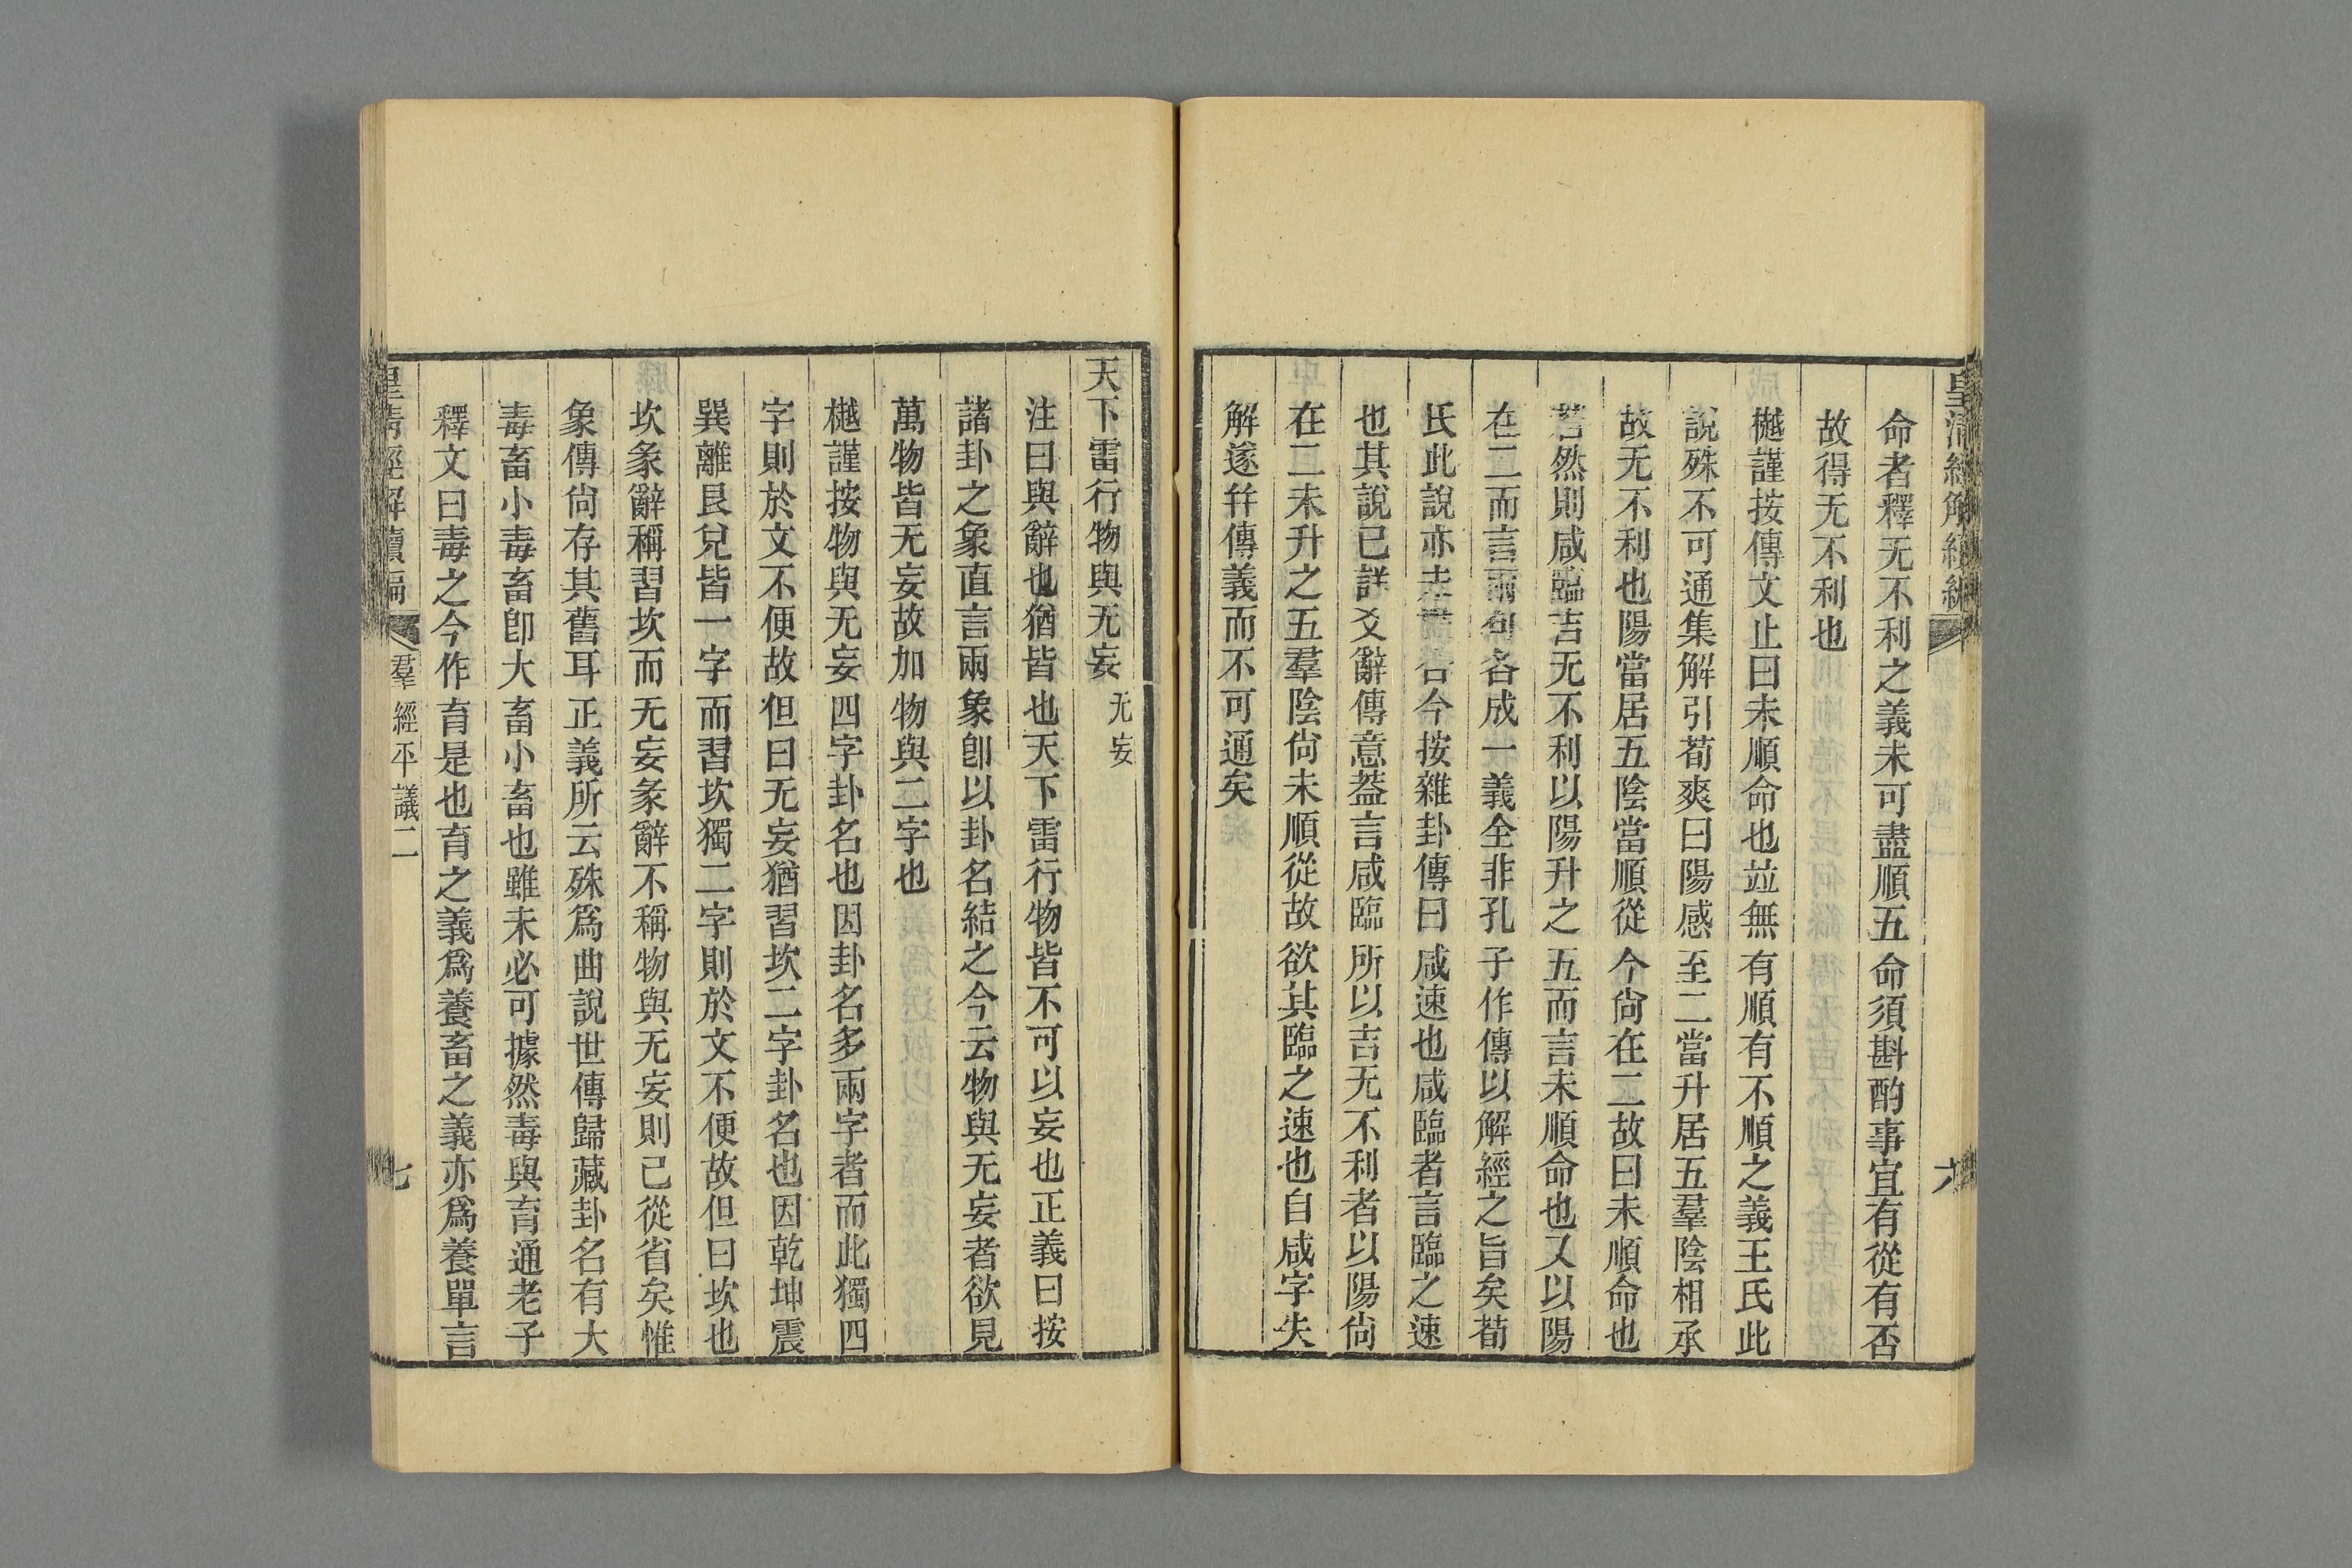 皇清經解續編
六
命者釋无不利之義未可盡順五命須斟酌事宜有從有否
故得无不利也
樾謹按傳文止曰未順命也竝無有順有不順之義王氏此
說殊不可通集解引荀爽曰陽感至二當升居五羣陰相承
故无不利也陽當居五陰當順從今尙在二故曰未順命也
若然則咸臨吉无不利以陽升之五而言未順命也又以陽
在二而言兩句各成一義全非孔子作傳以解經之旨矣荀
氏此說亦未當
今按雜卦傳曰咸速也咸臨者言臨之速
也其說已詳爻辭傳意葢言咸臨所以吉无不利者以陽尙
在二未升之五羣陰尙未順從故欲其臨之速也自咸字失
解遂幷傳義而不可通矣
天下雷行物與无妄 无妄
注曰與辭也猶皆也天下雷行物皆不可以妄也正義曰按
諸卦之象直言兩象卽以卦名結之今云物與无妄者欲見
萬物皆无妄故加物與二字也
樾謹按物與无妄四字卦名也因卦名多兩字者而此獨四
字則於文不便故但曰无妄猶習坎二字卦名也因乾坤震
巽離艮兌皆一字而習坎獨二字則於文不便故但曰坎也
坎彖辭稱習坎而无妄彖辭不稱物與无妄則已從省矣惟
象傳尙存其舊耳正義所云殊爲曲說世傳歸藏卦名有大
毒畜小毒畜卽大畜小畜也雖未必可據然毒與育通老子
釋文曰毒之今作育是也育之義爲養畜之義亦爲養單言
皇清經解續編
羣經平議二
七